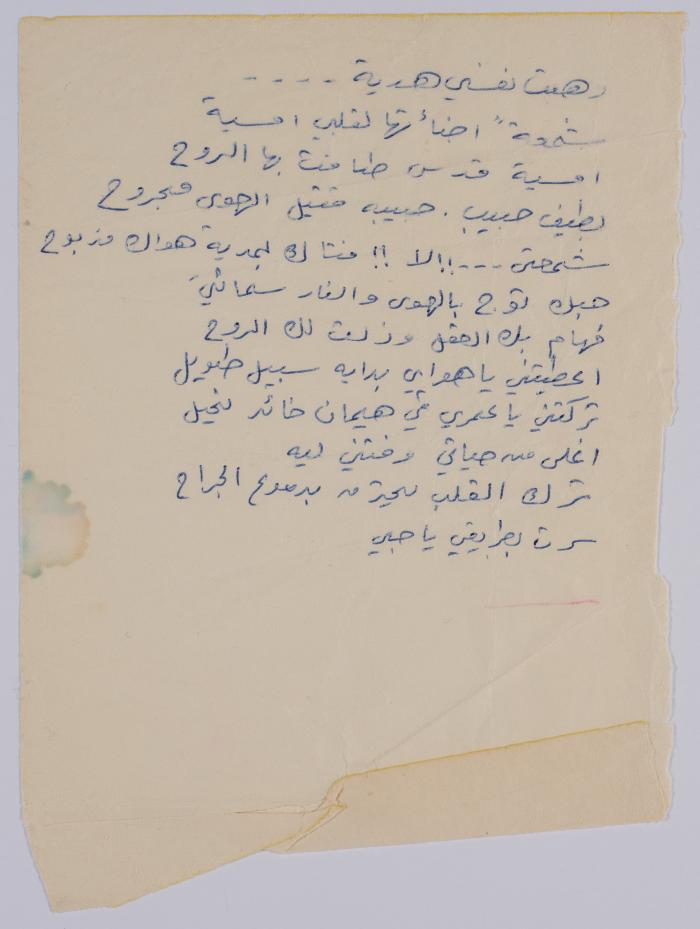 وهبت نفسي هدية ----
شمعة" اضأتها لقلبي امسية
امسية قدس طافت بها الروح
بطيف حبيب . حبيبه قتيل الهوى مجروح
شمعتي ---!!لا !! فتاك بمدية هواك مذبوح
توج بالهوى والنار سمائيَ
فهام بك العقل وذلت لك الروح
اعطيتني يا هواي بداية سبيل طويل
تركتني يا عمري في هيمان خائر نحيل
اغلى من حياتي وفتني ليه
ترك القلب بدموع الجراح
سرت بطريقي يا حبي